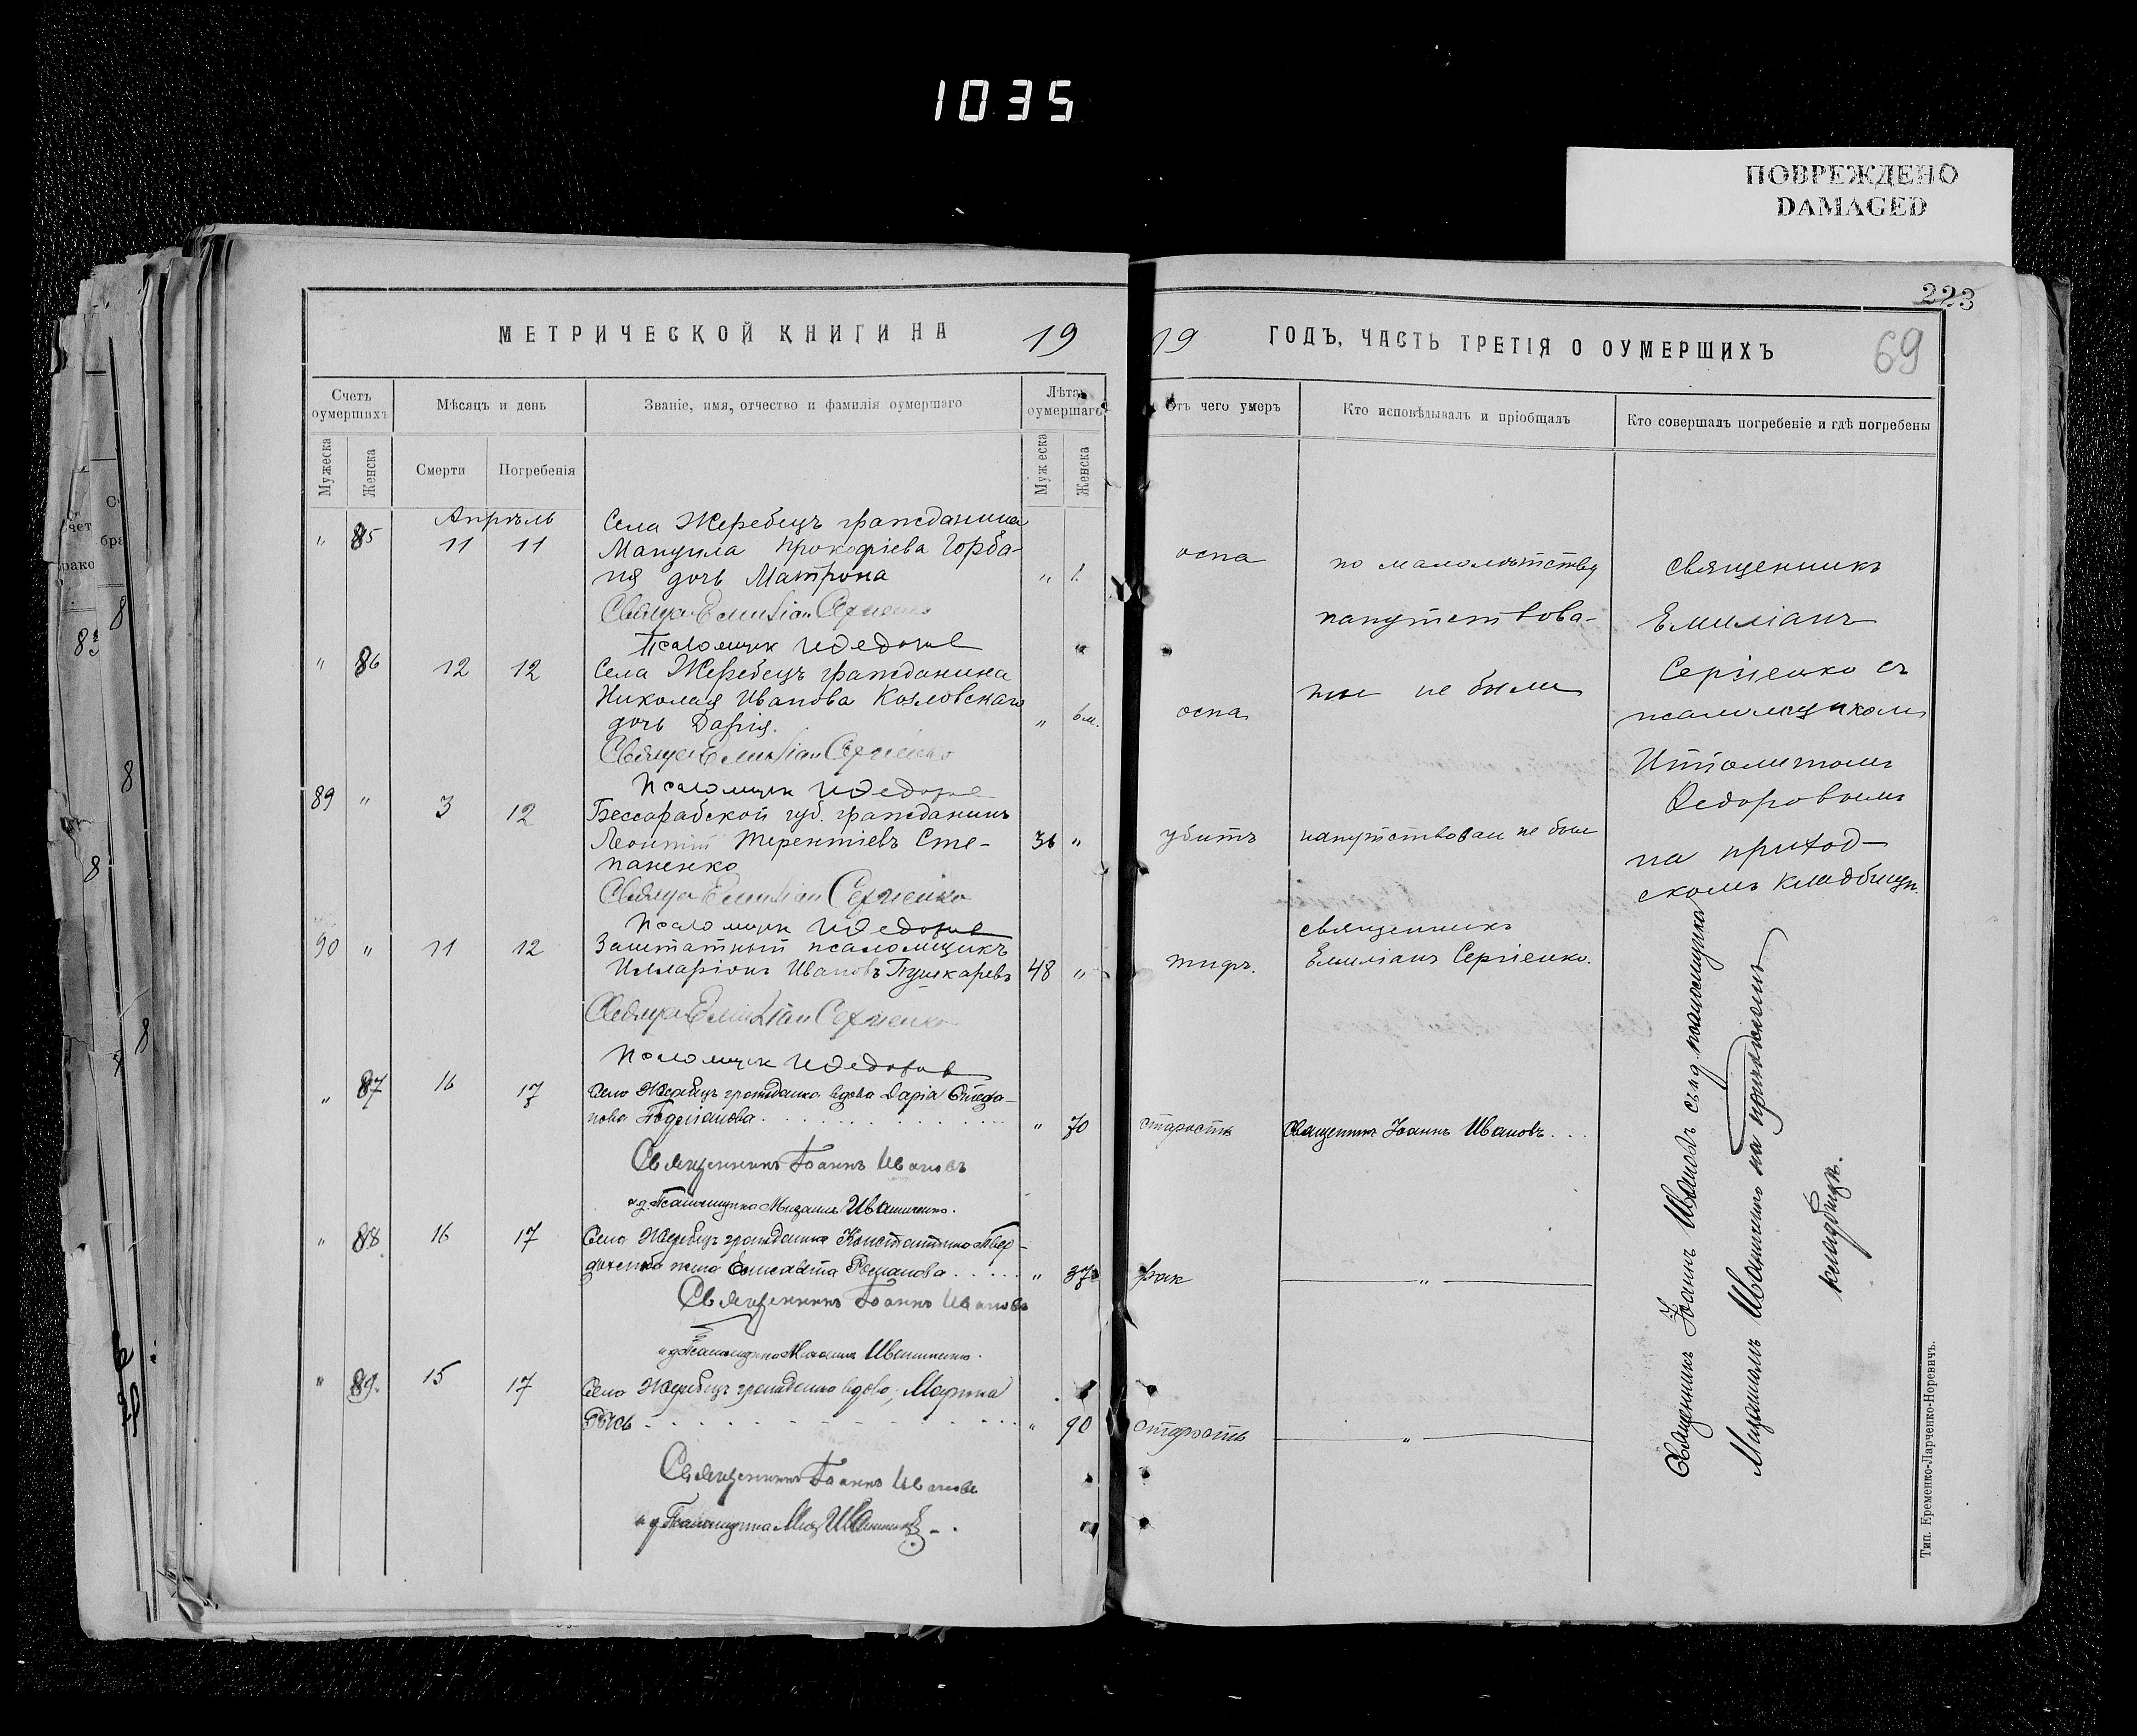 1035
ПОВРЕЖДЕНО
DAMAGED
223
69
МЕТРИЧЕСКОЙ КНИГИ НА 19
19 ГОДЪ, ЧАСТЬ ТРЕТІЯ О ОУМЕРШИХЪ
Счетъ оумершихъ
Мѣсяцъ и день
Званіе, имя, отчество и фамилія оумершаго
Лѣта оумершаго
Отъ чего умеръ
Кто исповѣдывалъ и пріобщалъ
Кто совершалъ погребеніе и гдѣ погребены
Мужеска
Женска
Смерти
Погребенія
Мужеска
Женска
Апрѣль
" 85 11 11
Села Жеребецъ гражданина
Мануила Прокофіева Горба-
ня дочь Матрона
" 1.
оспа
по малолѣтству
Священ Емиліан Сергіенко
Псаломщик И Федоров
" 86 12 12
Села Жеребецъ гражданина
Николая Иванова Козловскаго
дочь Дарія.
" 6 м.
оспа
напутствова-
ны не были
Священ Емиліан Сергіенко
Псаломщик И Федоров
89 " 3 12
Бессарабской губ. гражданинъ
Леонтій Терентіевъ Сте-
паненко
36 "
убитъ
напутствован не был
Священ Емиліан Сергіенко
Псаломщик И Федоров
90 " 11 12
Заштатный псаломщикъ
Илларіонъ Ивановъ Пушкаревъ
48 "
тифъ.
священникъ
Емиліанъ Сергіенко.
Священ Емиліан Сергіенко
Псаломщик И Федоров
священникъ
Емиліанъ
Сергіенко съ
псаломщикомъ
Ипполитомъ
Федоровымъ
на приход-
скомъ кладбищѣ.
" 87 16 17
Села Жеребецъ гражданка вдова Дарія Стефа-
нова
" 70
старость
Священникъ Іоаннъ Ивановъ. . .
Священникъ Іоаннъ Ивановъ
и.д. Псаломщика Михаилъ Иваниченко.
" 88 16 17
Села Жеребецъ гражданина Константина Твер-
дохлѣба жена Елисавета Романова . . . . .
" 37
рак
"
Священникъ Іоаннъ Ивановъ
и.д. Псаломщика Михаилъ Иваниченко.
" 89. 15 17
Села Жеребецъ гражданка вдова, Марина
" 90
старость
"
Священникъ Іоаннъ Ивановъ
и.д. Псаломщика Мих. Иваниченко
Священникъ Іоаннъ Ивановъ съ и.д. псаломщика
Михаиломъ Иваниченко на приходскомъ
кладбищѣ.
Тип. Еременко-Ларченко-Норевичъ.